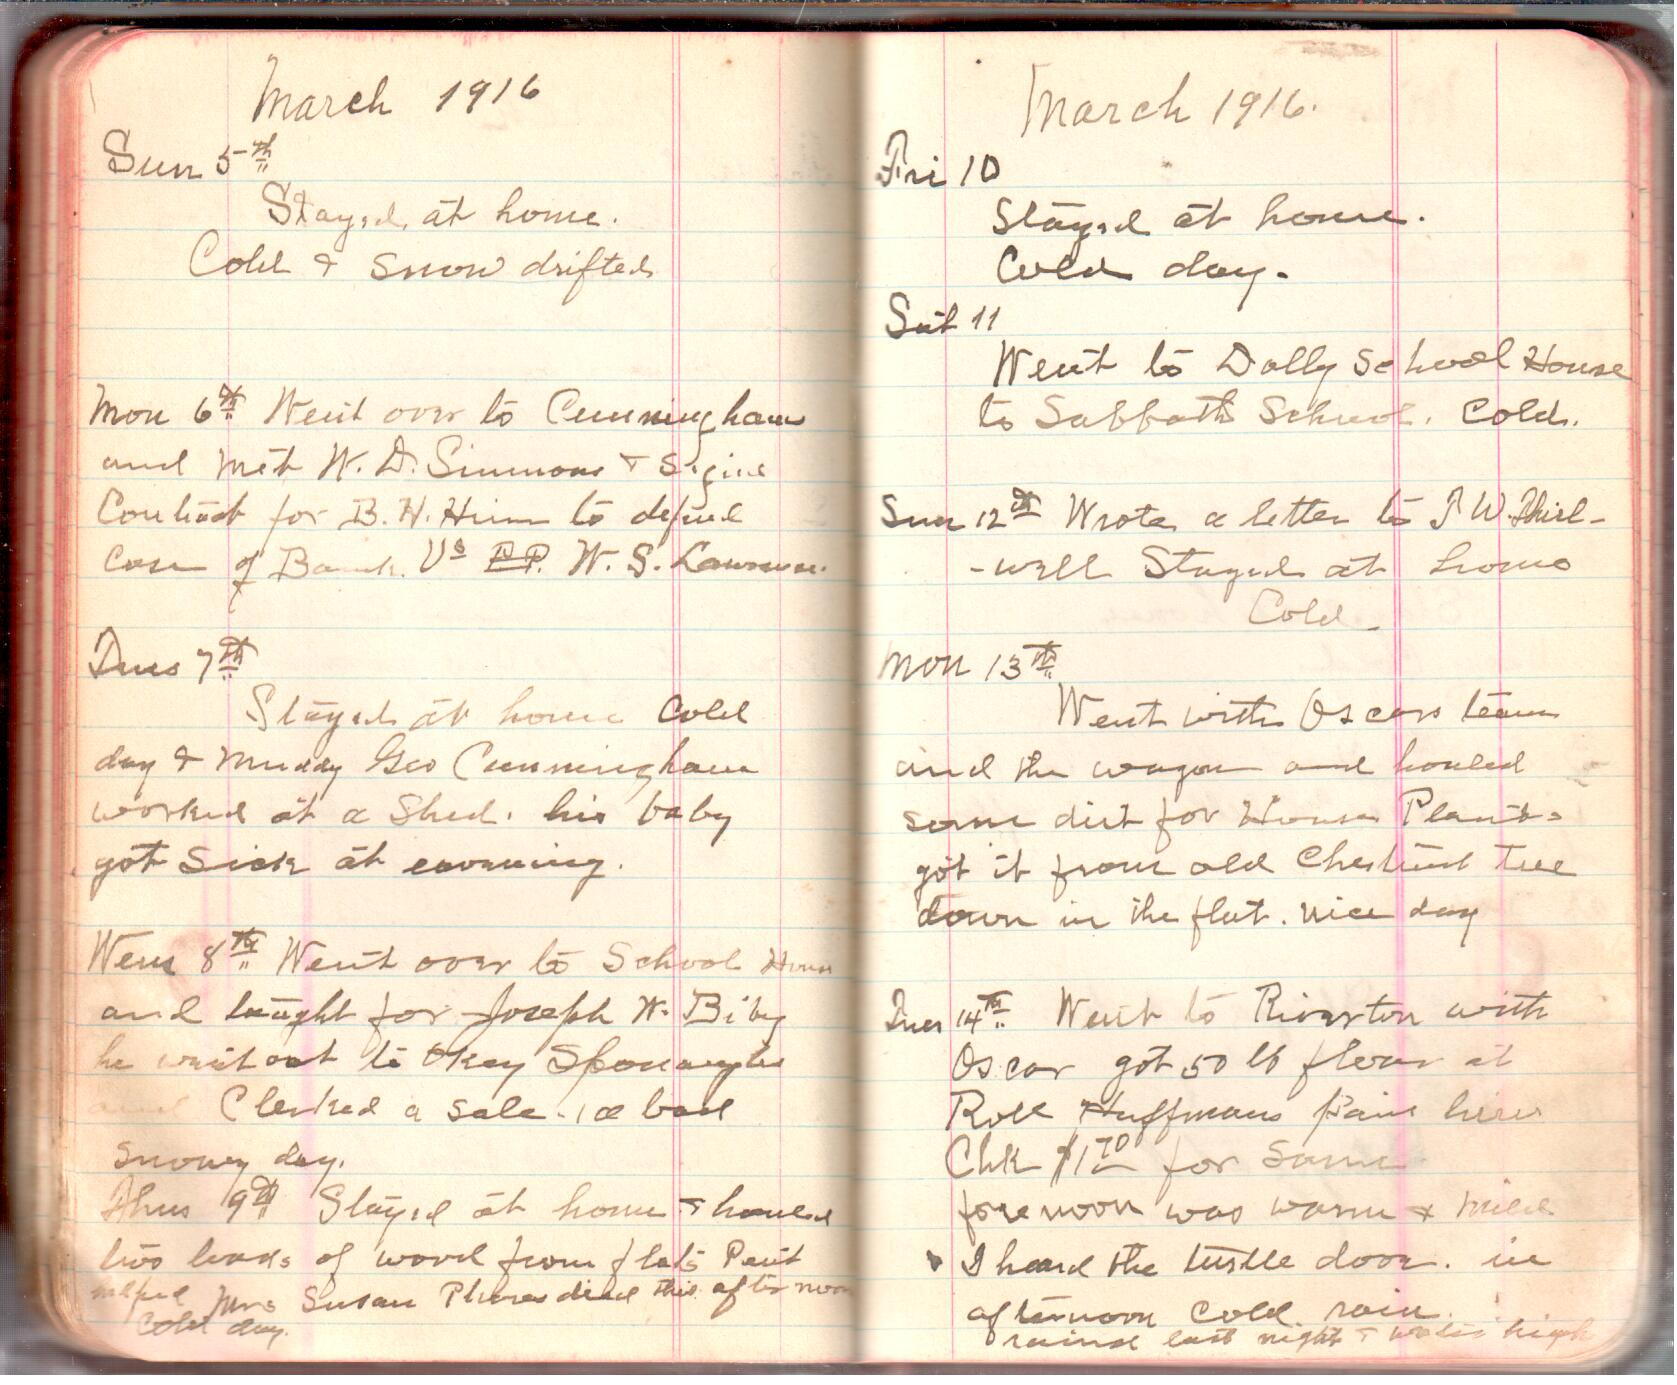 March 1916
Sun 5th
Stayed at home.
Cold & Snow drifted
Mon 6th Went over to Cunningham
and met W. D. Simmons & Signed
Contract for B. H. Hiner to defend
case of Bank. Vs W. S. Lawrence.
Tues 7th
Stayed at home Cold
day & Muddy Geo Cunningham
worked at a Shed. his baby
got Sick at evening.
Wens 8th Went over to School House
and taught for Joseph W. Biby
he went out to Okey Sponaugles
and Clerked a sale. a bad
snowy day.
Thus 9th Stayed at home & hauled
two loads of wood from flats
helped Mrs Susan Phares died this afternoon
Cold day.
March 1916.
Fri 10
Stayed at home.
Cold day.
Sat 11
Went to Dolly School House
to Sabbath School. Cold.
Sun 12th Wrote a letter to J W. Thirl-
-well Stayed at home
Cold
Mon 13th
Went with Oscars team
and the wagon and hauled
some dirt for House Plants.
got it from old Chestnut tree
down in the flat. nice day
Tues 14th. Went to Riverton with
Oscar got 50 lb flour at
Roll Huffmans Paid him
Chk $1 70 for Same
forenoon was warm & mild
I heard the turtle dove. in
afternoon Cold rain.
rained last night & water high